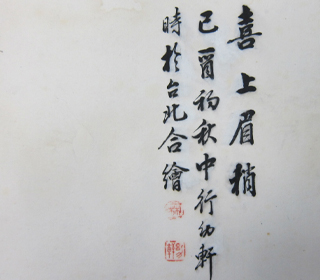 喜上眉梢
己酉初秋中行幼軒
時於台北合繪